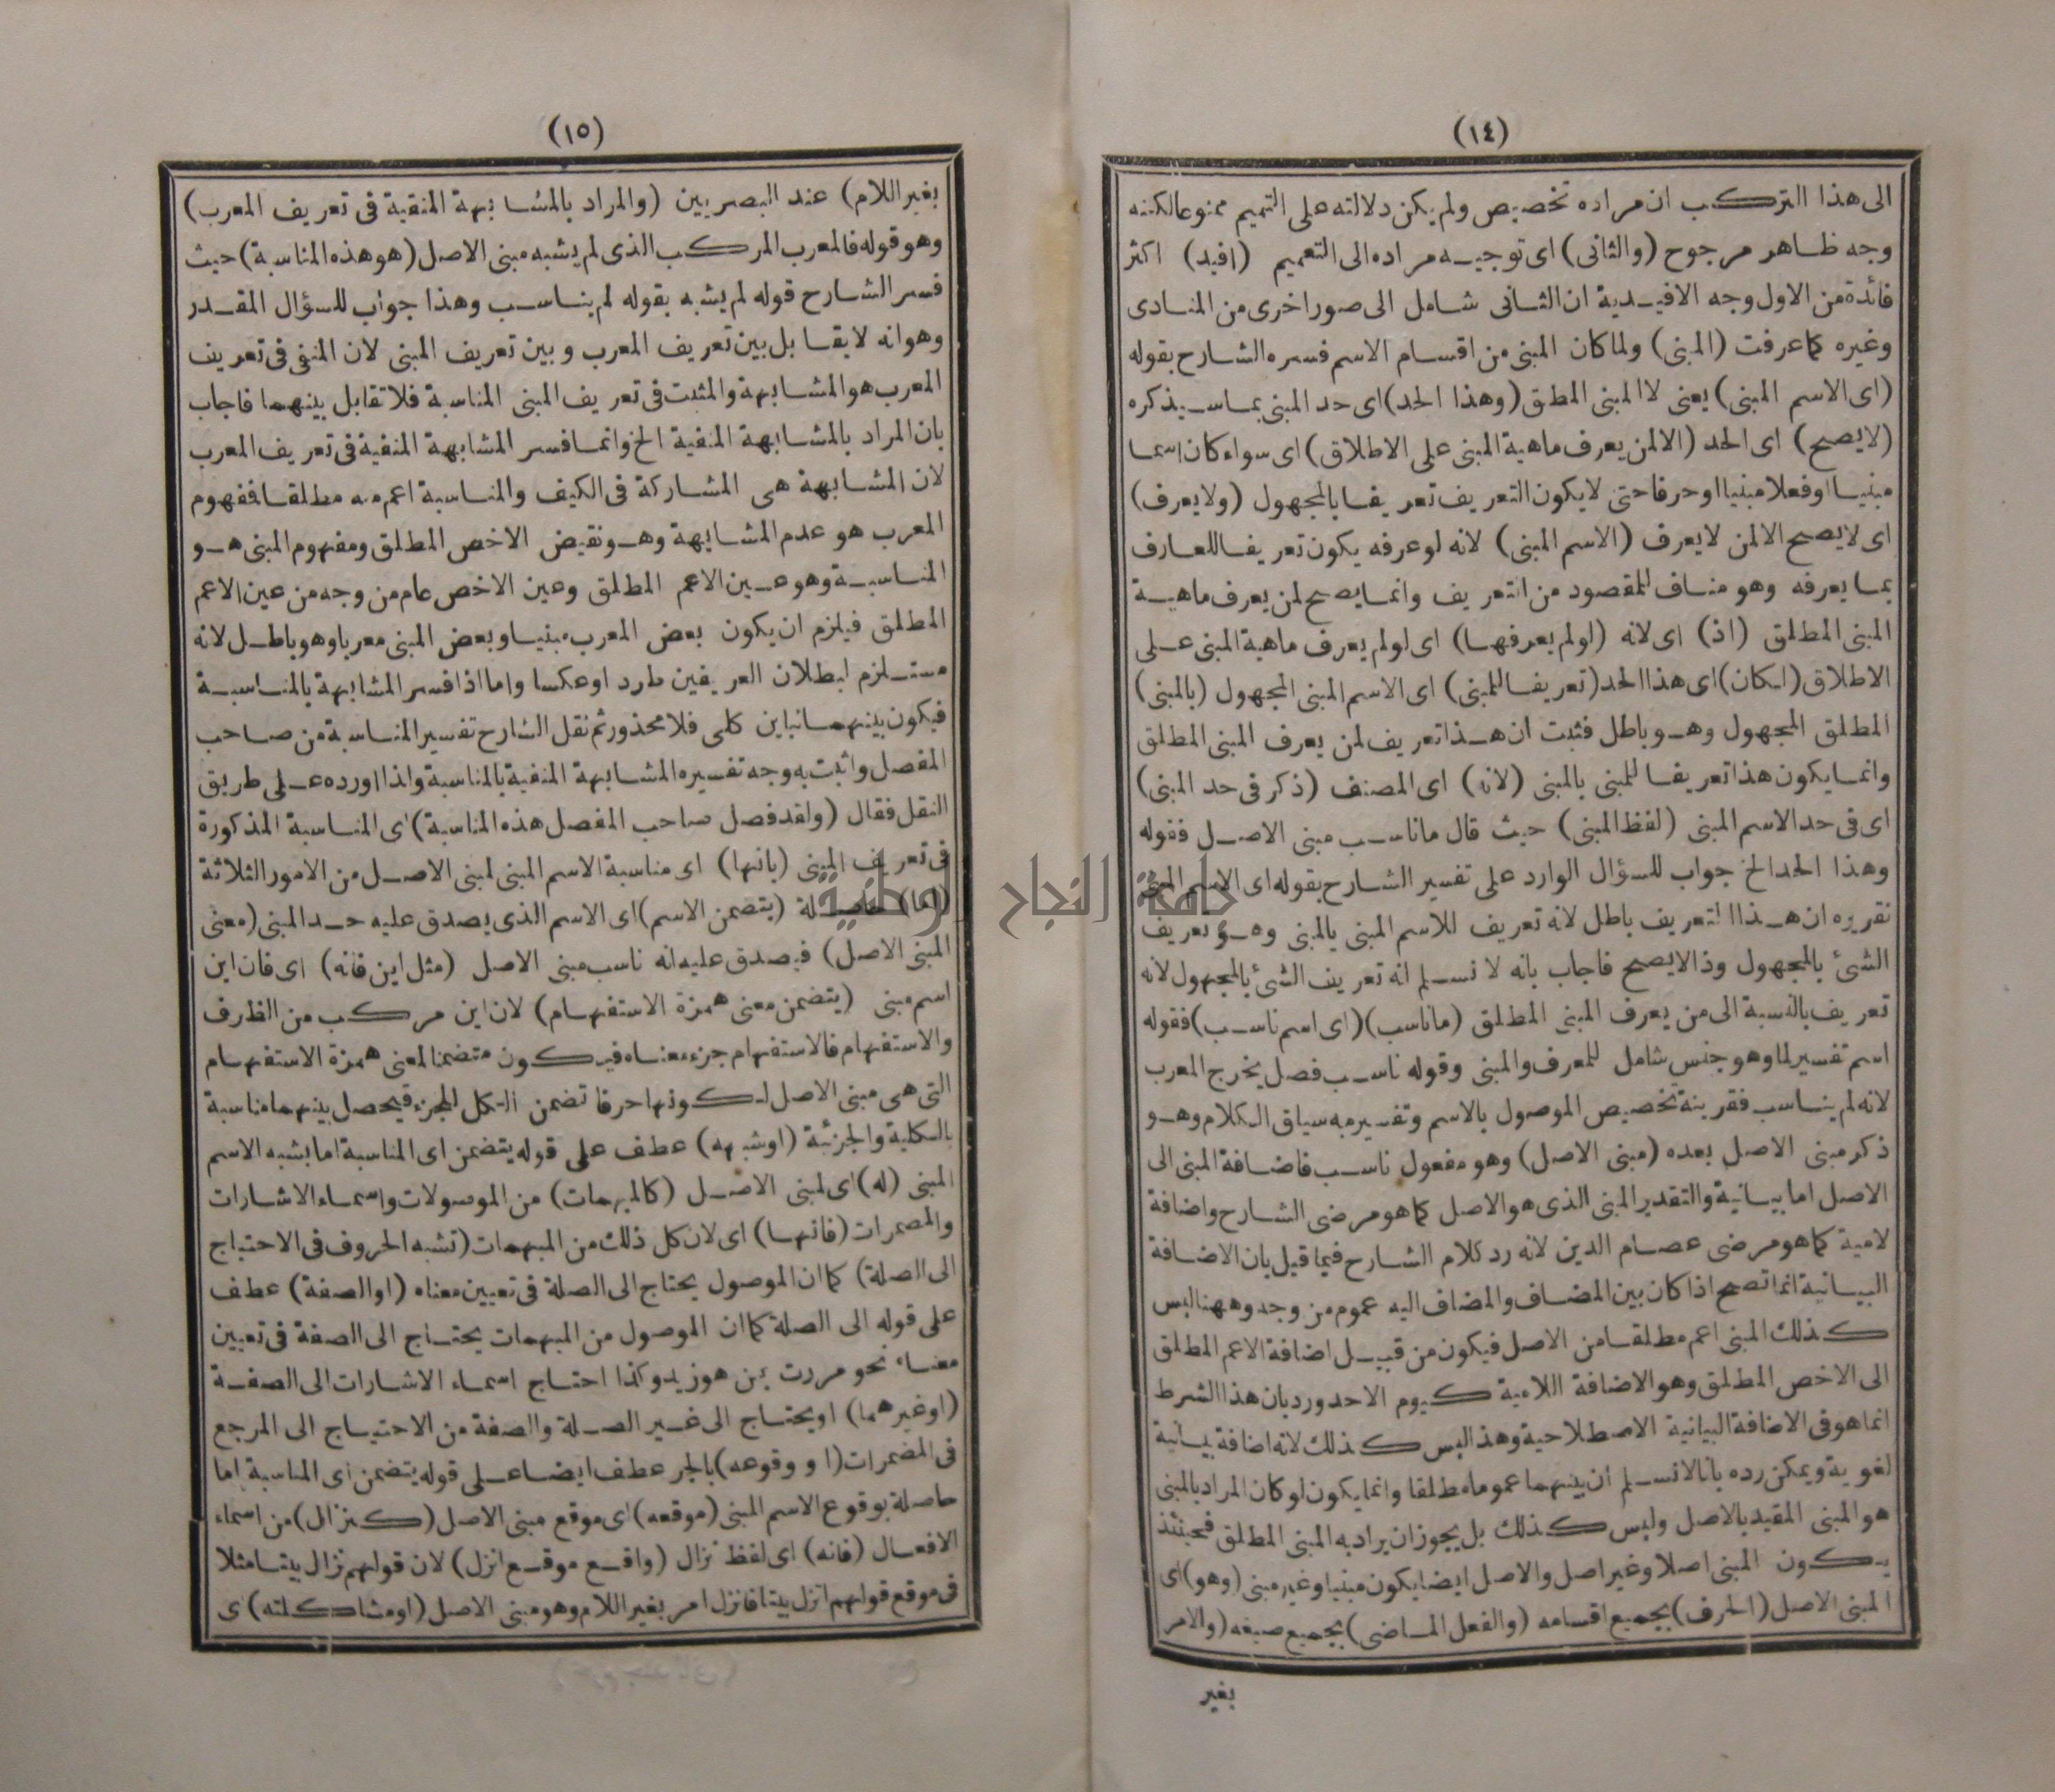 (١٤)
الى هذا التركب ان مراده تخصيص ولم يكن دلالته على التميم ممنوعا لكنه
وجه ظاهر مرجوح (والثانى) اى توجيه مراده الى التعميم (افيد) اكثر
فائدة من الاول وجه الافيدية ان الثانى شامل الى صور اخرى من المنادى
وغيره كما عرفت (المبنى) ولما كان المبنى من اقسام الاسم فسره الشارح بقوله
(اى الاسم المبنى) يعنى لا المبنى المطلق (وهذا الحد) اى حد المبنى بما سيذكره
(لا يصح) اى الحد (الا لمن يعرف ماهية المبنى على الاطلاق) اى سواء كان اسما
مبنيا او فعلا مبنيا او حرفا حتى لا يكون التعريف تعريفا بالمجهول (ولا يعرف)
اى لا يصح الا لمن لا يعرف (الاسم المبنى) لانه لو عرفه يكون تعريفا للعارف
بما يعرفه وهو مناف للمقصود من التعريف وانما يصح لمن يعرف ماهية
المبنى المطلق (اذ) اى لانه (لو لم يعرفها) اى لو لم يعرف ماهية المبنى على
الاطلاق (لكان) اى هذا الحد (تعريفا للمبنى) اى الاسم المبنى المجهول (بالمبنى)
المطلق المجهول وهو باطل فثبت ان هذا تعريف لمن يعرف المبنى المطلق
وانما يكون هذا تعريفا للمبنى بالمبنى (لانه) اى المصنف (ذكر فى حد المبنى)
اى فى حد الاسم المبنى (لفظ المبنى) حيث قال ما ناسب مبنى الاصل فقوله
وهذا الحد الخ جواب للسؤال الوارد على تفسير الشارح بقوله اى الاسم المبنى
تقريره ان هذا التعريف باطل لانه تعريف للاسم المبنى بالمبنى وهو تعريف
الشئ بالمجهول وذا لا يصح فاجاب بانه لا نسلم انه تعريف الشئ بالمجهول لانه
تعريف بالنسبة الى من يعرف المبنى المطلق (ما ناسب) (اى اسم ناسب) فقوله
اسم تفسير لما وهو جنس شامل للمعرف والمبنى وقوله ناسب فصل يخرج المعرب
لانه لم يناسب فقرينة تخصيص الموصول بالاسم وتفسيره به سياق الكلام وهو
ذكر مبنى الاصل بعده (مبنى الاصل) وهو مفعول ناسب فاضافة المبنى الى
الاصل اما بيانية والتقدير المبنى الذى هو الاصل كما هو مرضى الشارح واضافة
لامية كما هو مرضى عصام الدين لانه رد كلام الشارح فيما قيل بان الاضافة
البيانية انما تصح اذا كان بين المضاف والمضاف اليه عموم من وجه وههنا ليس
كذلك المبنى اعم مطلقا من الاصل فيكون من قبيل اضافة الاعم المطلق
الى الاخص المطلق وهو الاضافة اللامية كيوم الاحد ورد بان هذا الشرط
انما هو فى الاضافة البيانية الاصطلاحية وهذا ليس كذلك لانه اضافة بيانية
لغوية ويمكن رده بانا لا نسلم ان بينهما عموما مطلقا وانما يكون لو كان المراد بالمبنى
هو المبنى المقيد بالاصل وليس كذلك بل يجوز ان يراد به المبنى المطلق فحينئذ
يكون المبنى اصلا وغير اصل والاصل ايضا يكون مبنيا وغير مبنى (وهو) اى
المبنى الاصل (الحرف) بجميع اقسامه (والفعل الماضى) بجميع صيغه (والامر
بغير
(١٥)
بغير اللام) عند البصريين (والمراد بالمشابهة المنفية فى تعريف المعرب)
وهو قوله فالمعرب المركب الذى لم يشبه مبنى الاصل (هو هذه المناسبة) حيث
فسر الشارح قوله لم يشبه بقوله لم يناسب وهذا جواب للسؤال المقدر
وهو انه لا يقابل بين تعريف المعرب وبين تعريف المبنى لان المنفى فى تعريف
المعرب هو المشابهة والمثبت فى تعريف المبنى المناسبة فلا تقابل بينهما فاجاب
بان المراد بالمشابهة المنفية الخ وانما فسر المشابهة المنفية فى تعريف المعرب
لان المشابهة هى المشاركة فى الكيف والمناسبة اعم منه مطلقا فمفهوم
المعرب هو عدم المشابهة وهو نقيض الاخص المطلق ومفهوم المبنى هو
المناسبة وهو عين الاعم المطلق وعين الاخص عام من وجه من عين الاعم
المطلق فيلزم ان يكون بعض المعرب مبنيا وبعض المبنى معربا وهو باطل لانه
مستلزم ابطلان العريفين طرد او عكسا واما اذا فسر المشابهة بالمناسبة
فيكون بينهما تباين كلى فلا محذور ثم نقل الشارح تفسير المناسبة من صاحب
المفصل واثبت به وجه تفسيره المشابهة المنفية بالمناسبة ولذا اورده على طريق
النقل فقال (ولقد فصل صاحب المفصل هذه المناسبة) اى المناسبة المذكورة
فى تعريف المبنى (بانها) اى مناسبة الاسم المبنى لمبنى الاصل من الامور الثلاثة
(اما) حاصلة (بتضمن الاسم) اى الاسم الذى يصدق عليه حد المبنى (معنى
المبنى الاصل) فيصدق عليه انه ناسب مبنى الاصل (مثل اين فانه) اى فان اين
اسم مبنى (يتضمن معنى همزة الاستفهام) لان اين مركب من الظرف
والاستفهام فالاستفهام جزء معناه فيكون متضمنا لمعنى همزة الاستفهام
التى هى مبنى الاصل لكونها حرفا تضمن الكل الجزء فيحصل بينهما مناسبة
بالكلية والجزئية (او شبهه) عطف على قوله يتضمن اى المناسبة اما بشبه الاسم
المبنى (له) اى لمبنى الاصل (كالمبهمات) من الموصولات واسماء الاشارات
والمضمرات (فانها) اى لان كل ذلك من المبهمات (تشبه الحروف فى الاحتياج
الى الصلة) كما ان الموصول يحتاج الى الصلة فى تعيين معناه (او الصفة) عطف
على قوله الى الصلة كما ان الموصول من المبهمات يحتاج الى الصفة فى تعيين
معناه نحو مررت بمن هو زيد وكذا احتاج اسماء الاشارات الى الصفة
(او غيرهما) او يحتاج الى غير الصلة والصفة من الاحتياج الى المرجع
فى المضمرات (او وقوعه) بالجر عطف ايضا على قوله يتضمن اى المناسبة اما
حاصلة بوقوع الاسم المبنى (موقعه) اى موقع مبنى الاصل (كنزال) من اسماء
الافعال (فانه) اى لفظ نزال (واقع موقع انزل) لان قولهم نزال بيتا مثلا
فى موقع قولهم انزل بيتا فانزل امر بغير اللام وهو مبنى الاصل (او مشاكلته) اى
جامعة النجاح الوطنية